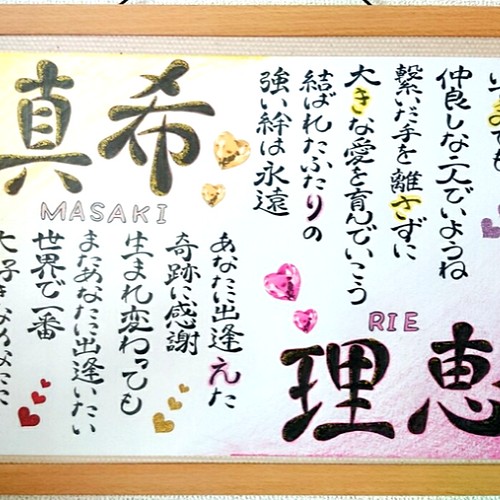 真希
MASAKI
いつまでも
仲良しな二人でいようね
繋いだ手を離さずに
大きな愛を育んでいこう
結ばれたふたりの
強い絆は永遠
RIE
理恵
あなたに出逢えた
奇跡に感謝
生まれ変わっても
またあなたに出逢いたい
世界で一番
大好きなあなたに